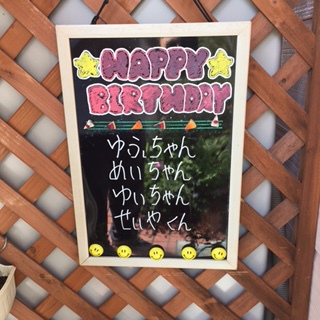 HAPPY
BIRTHDAY
ゆうちゃん
めいちゃん
ゆいちゃん
せいやくん